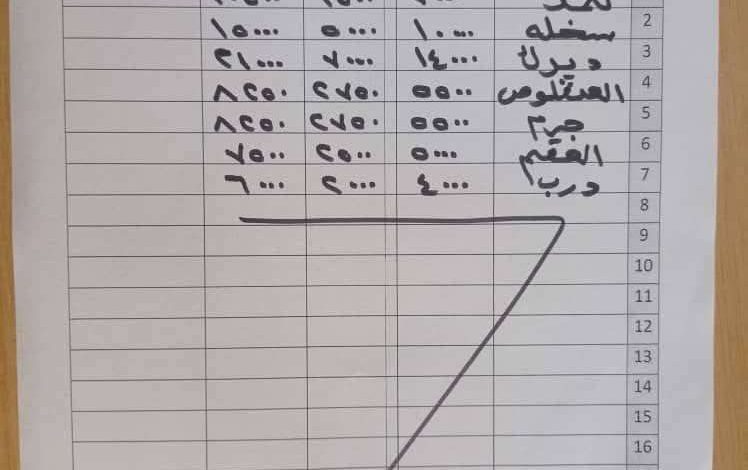 2 سخله ١٠٠٠٠ ٥٠٠٠ ١٥٠٠٠
3 ديرك ١٤٠٠٠ ٧٠٠٠ ٢١٠٠٠
4 ٥٥٠٠ ٢٧٥٠ ٨٢٥٠
5 ٥٥٠٠ ٢٧٥٠ ٨٢٥٠
6 الفقم ٥٠٠٠ ٢٥٠٠ ٧٥٠٠
7 درب ٤٠٠٠ ٢٠٠٠ ٦٠٠٠
8
9
10
11
12
13
14
15
16